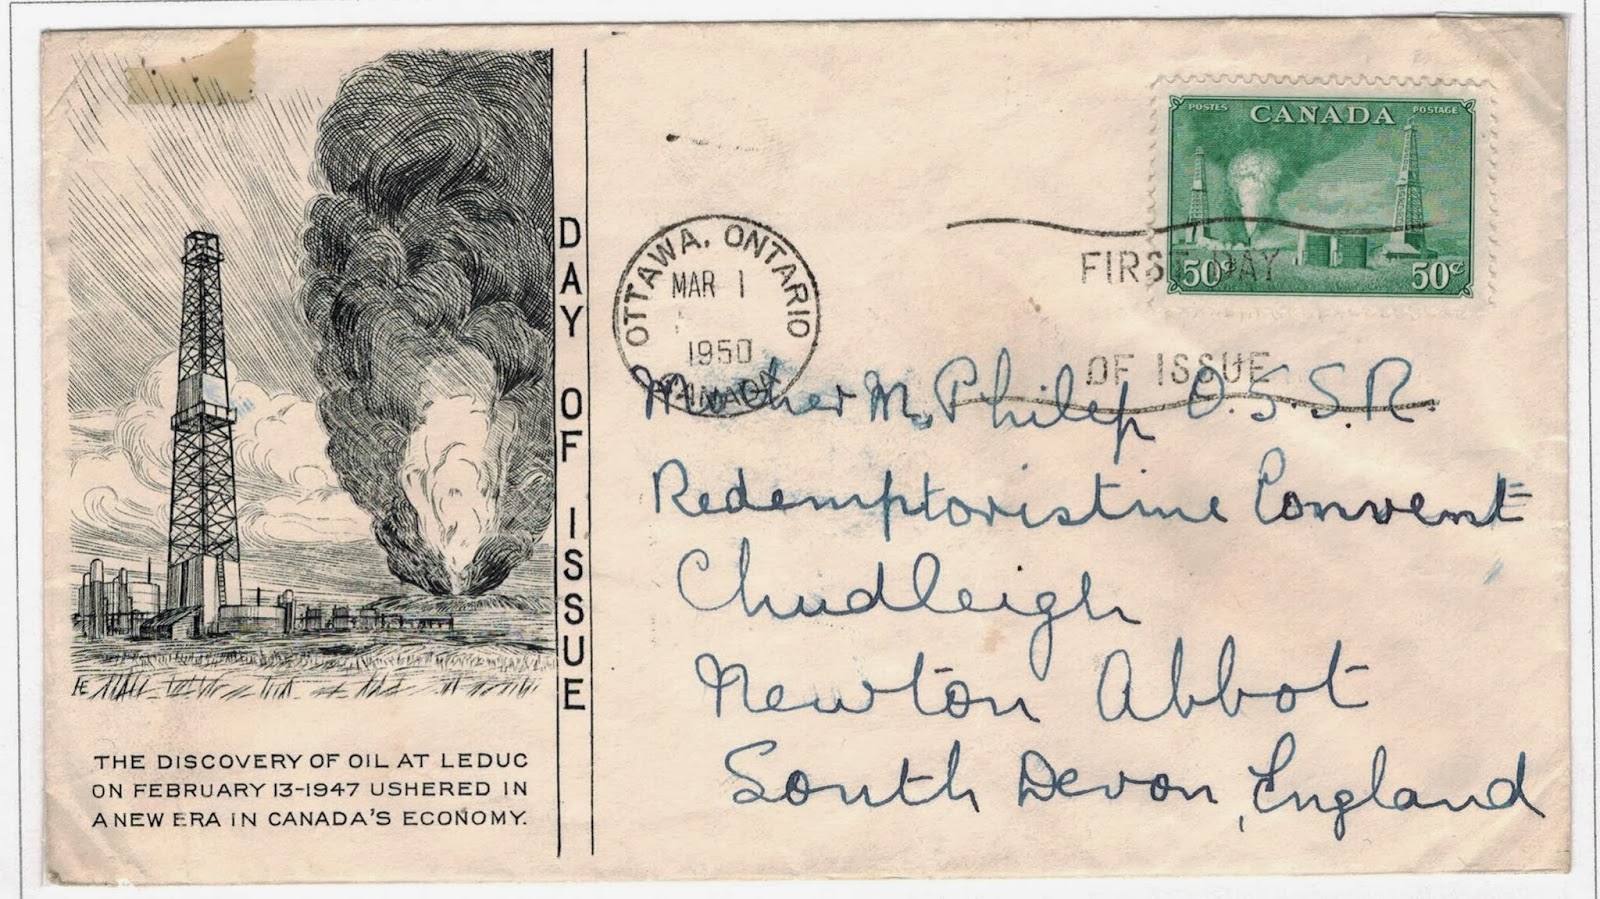 DAY OF ISSUE
Æ
THE DISCOVERY OF OIL AT LEDUC
ON FEBRUARY 13-1947 USHERED IN
A NEW ERA IN CANADA'S ECONOMY.
OTTAWA, ONTARIO
MAR 1
1950
CANADA
POSTES CANADA POSTAGE
50¢ 50¢
FIRST DAY
OF ISSUE
Mother M. Philip O.S.S.R.
Redemptoristine Convent
Chudleigh
Newton Abbot
South Devon, England